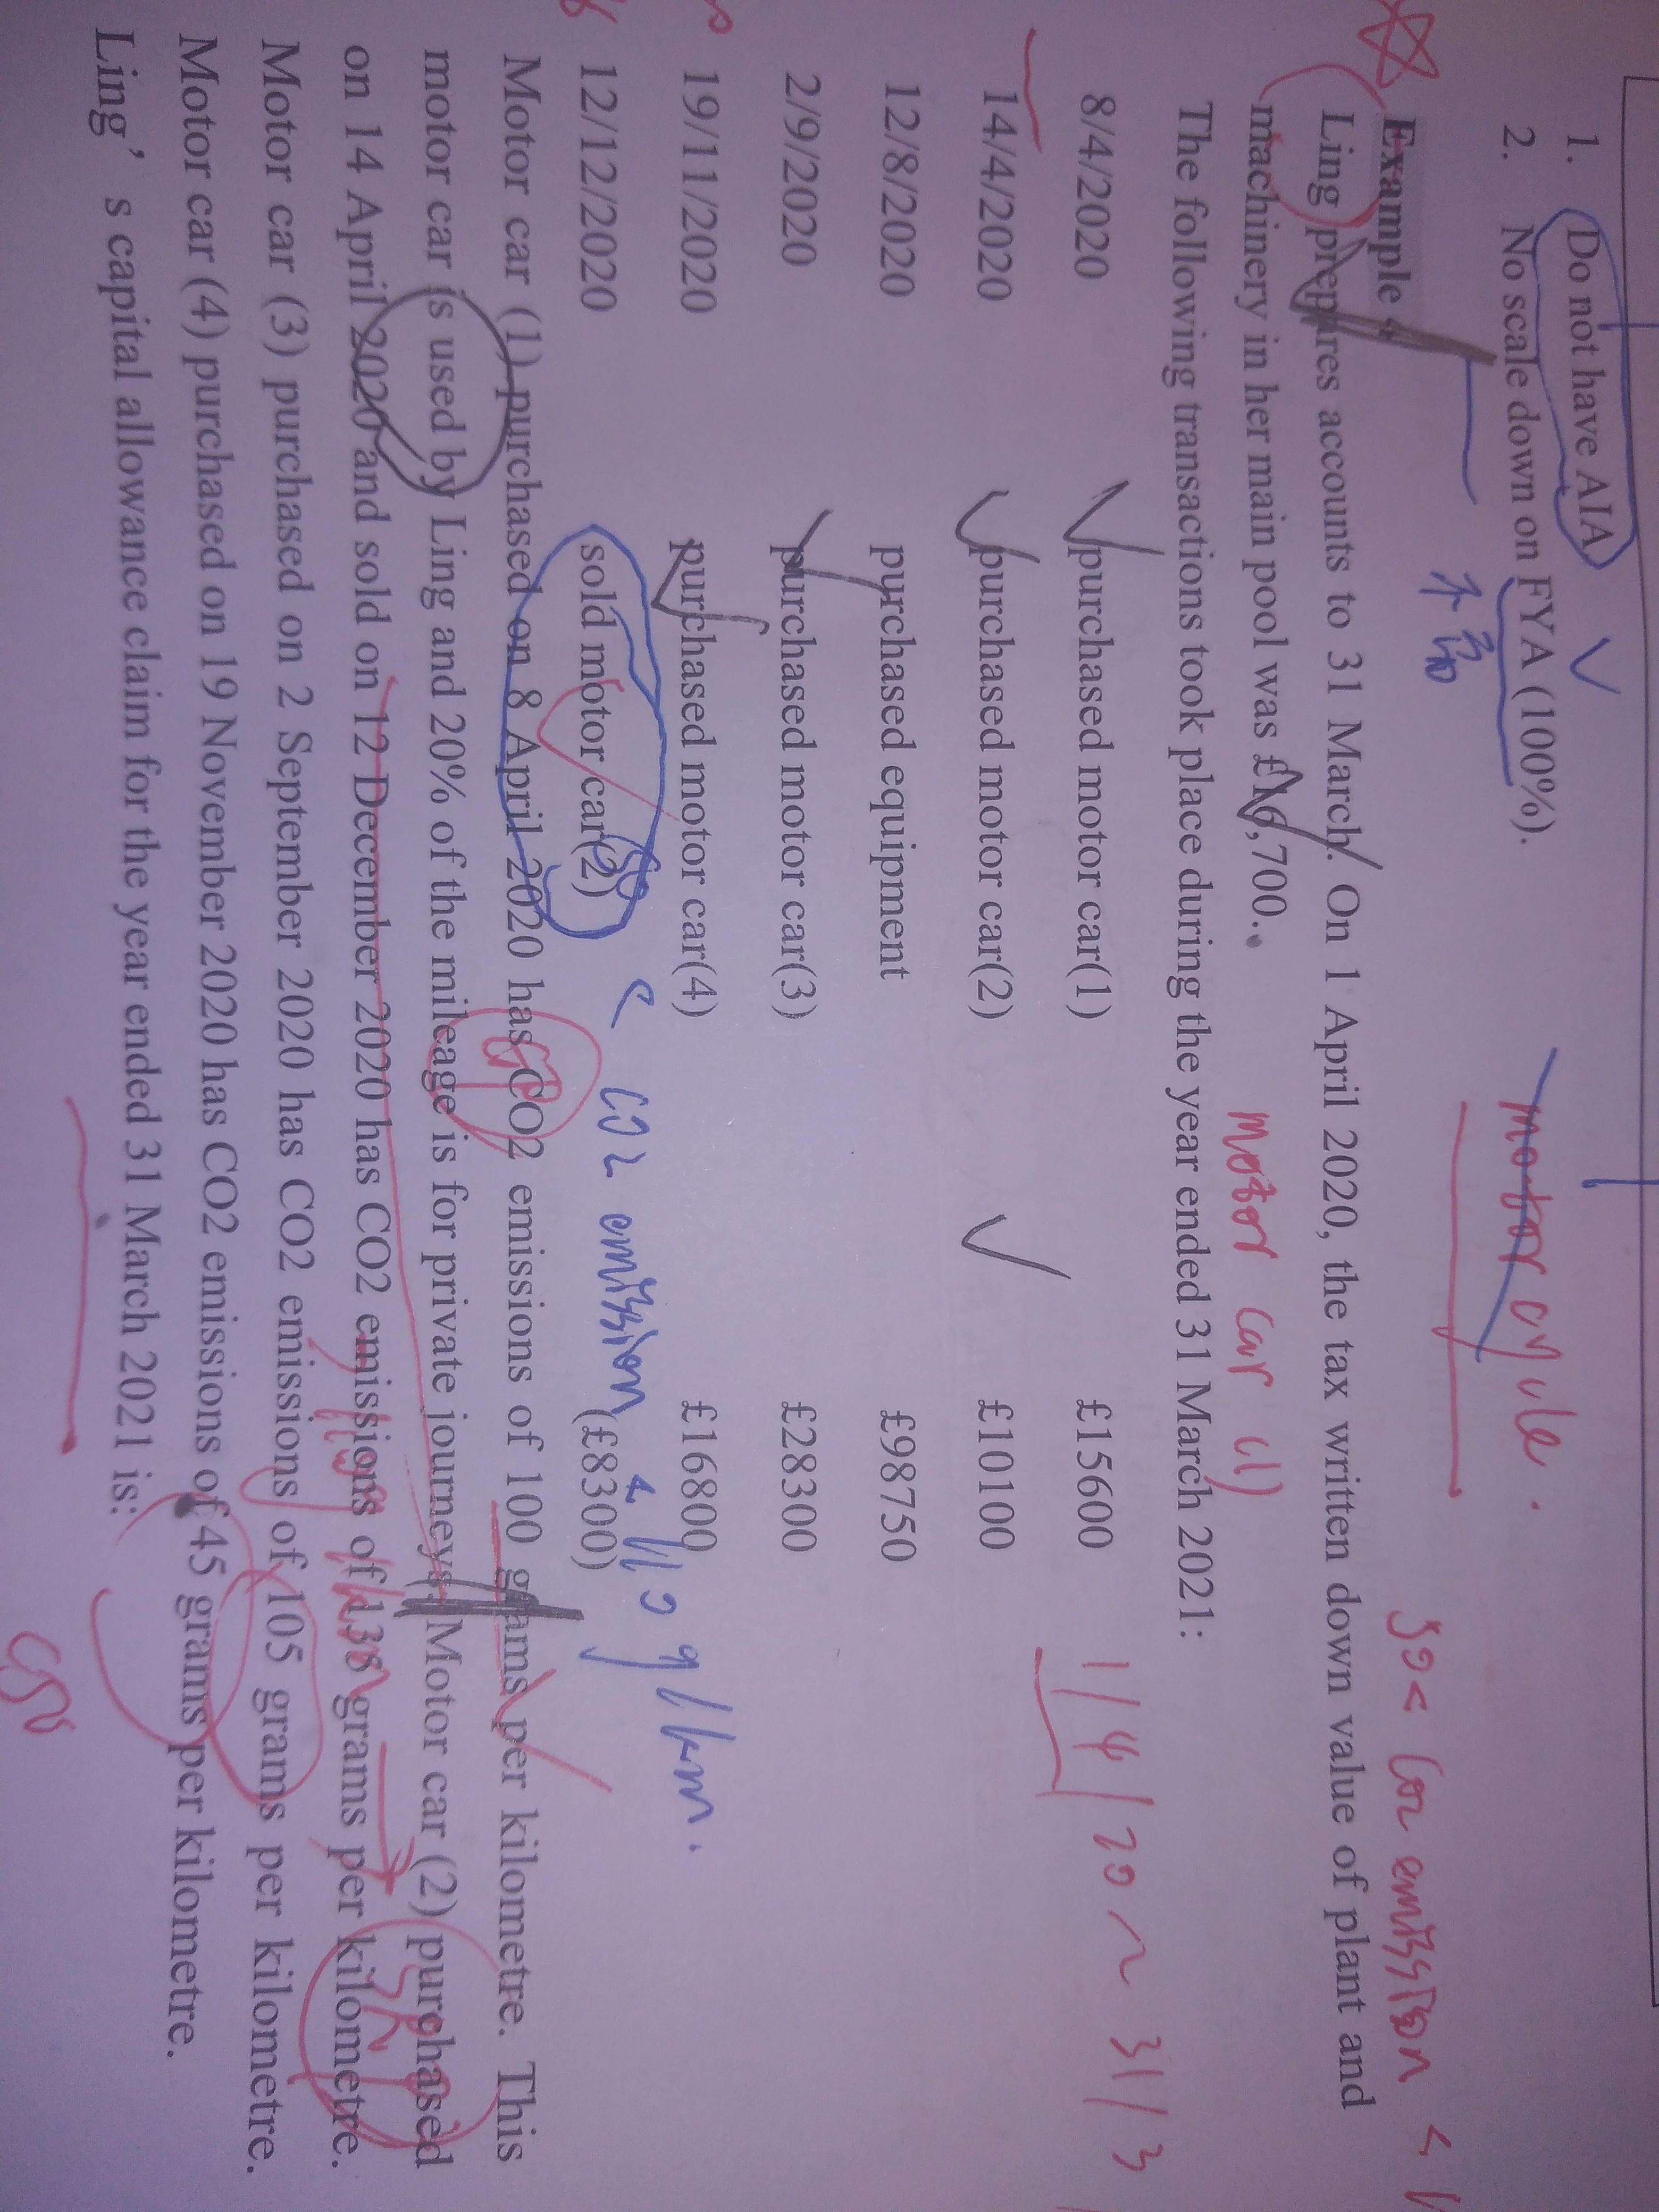 1. Do not have AIA
2. No scale down on FYA (100%).
motor cycle.
Example 4
50 < CO2 emission <
Ling prepares accounts to 31 March. On 1 April 2020, the tax written down value of plant and
machinery in her main pool was £16,700.
motor car (1)
The following transactions took place during the year ended 31 March 2021:
1/4/20 ~ 31/3
8/4/2020 purchased motor car(1) £15600
14/4/2020 purchased motor car(2) £10100
12/8/2020 purchased equipment £98750
2/9/2020 purchased motor car(3) £28300
19/11/2020 purchased motor car(4) £16800
CO2 emission < 110 g/km.
12/12/2020 sold motor car(2) (£8300)
Motor car (1) purchased on 8 April 2020 has CO2 emissions of 100 grams per kilometre. This
motor car is used by Ling and 20% of the mileage is for private journeys. Motor car (2) purchased
on 14 April 2020 and sold on 12 December 2020 has CO2 emissions of 135 grams per kilometre.
Motor car (3) purchased on 2 September 2020 has CO2 emissions of 105 grams per kilometre.
Motor car (4) purchased on 19 November 2020 has CO2 emissions of 45 grams per kilometre.
Ling’s capital allowance claim for the year ended 31 March 2021 is: